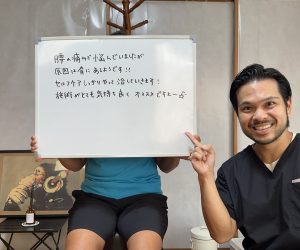 腰の痛みで悩んでいましたが
原因は首にあるようです!!
セルフケアしっかりやって治していきます!
施術がとても気持ち良く オススメですよー